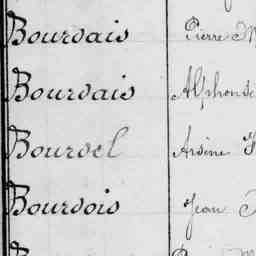 Bourdais Pierre
Bourdais Alphonse
Bourdel Arsène
Bourdois Jean